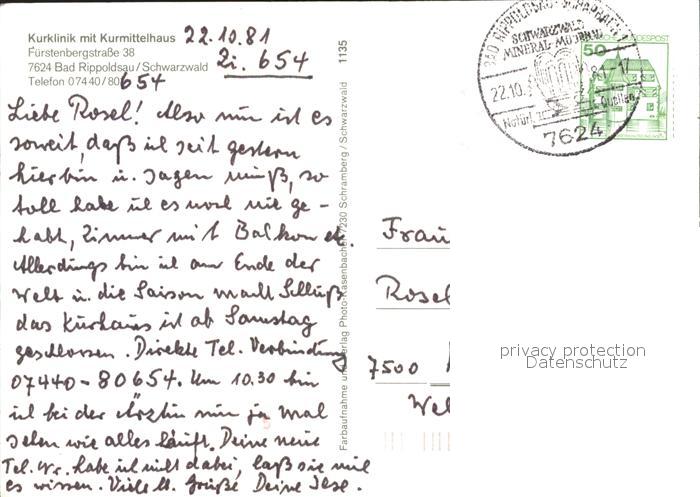 Kurklinik mit Kurmittelhaus
Fürstenbergstraße 38
7624 Bad Rippoldsau/Schwarzwald
Telefon 07440/80 654
22.10.81
Zi. 654
Liebe Rosel! Also nun ist es
soweit, daß ich seit gestern
hier bin u. sagen muß, so
toll habe ich es noch nie ge-
habt, Zimmer mit Balkon etc.
Allerdings bin ich am Ende der
Welt u. die Saison macht Schluß
das Kurhaus ist ab Samstag
geschlossen. Direkte Tel. Verbindung
07440-80654. Um 10.30 bin
ich bei der Ärztin nun ja mal
sehen wie alles läuft. Deine neue
Tel. Nr. habe ich nicht dabei, laß sie mich
es wissen. Viele Grüße Deine
1135
Farbaufnahme und Verlag Photo-Kasenbacher, 7230 Schramberg/Schwarzwald
BAD RIPPOLDSAU-SCHAPBACH 1
SCHWARZWALD
MINERAL-MOORBAD
22.10. 81-17
Natürl. Quellen
7624
50
BUNDESPOST
Frau
Rosel
7500
privacy protection
Datenschutz